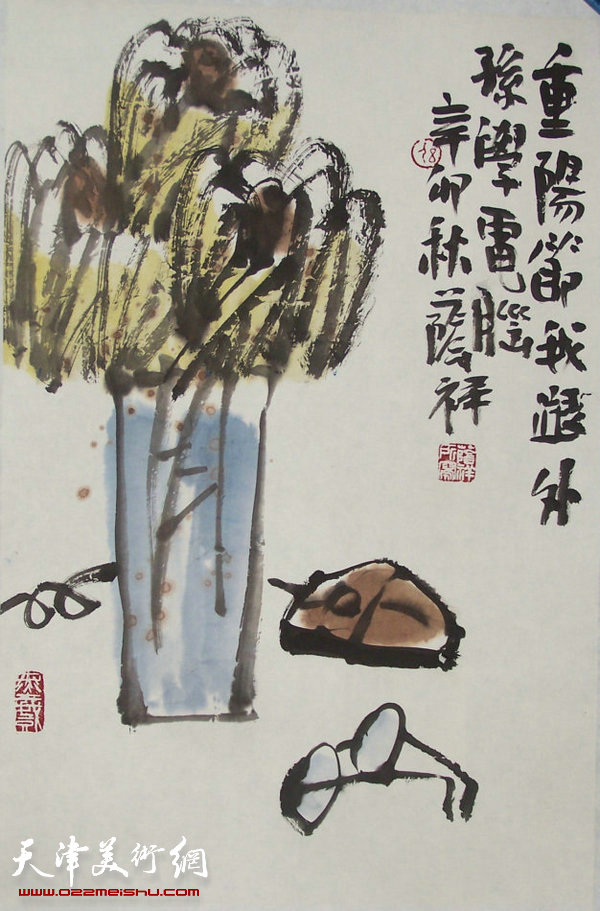 重陽節我跟外
孫學電腦
辛卯秋蔭祥
天津美術網
www.022meishu.com